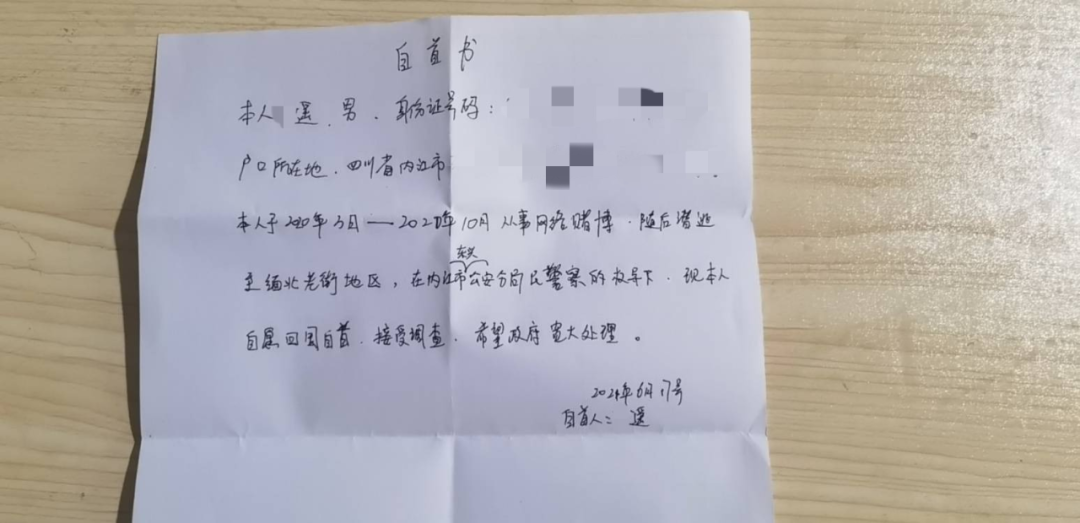 自首书
本人 遥、男、身份证号码:
户口所在地、四川省内江市
本人于2020年3月—2021年10月从事网络赌博、随后潜逃
东兴
至缅北老街地区,在内江市公安分局民警察的教导下、现本人
自愿回国自首、接受调查、希望政府宽大处理。
2024年6月17号
自首人:遥